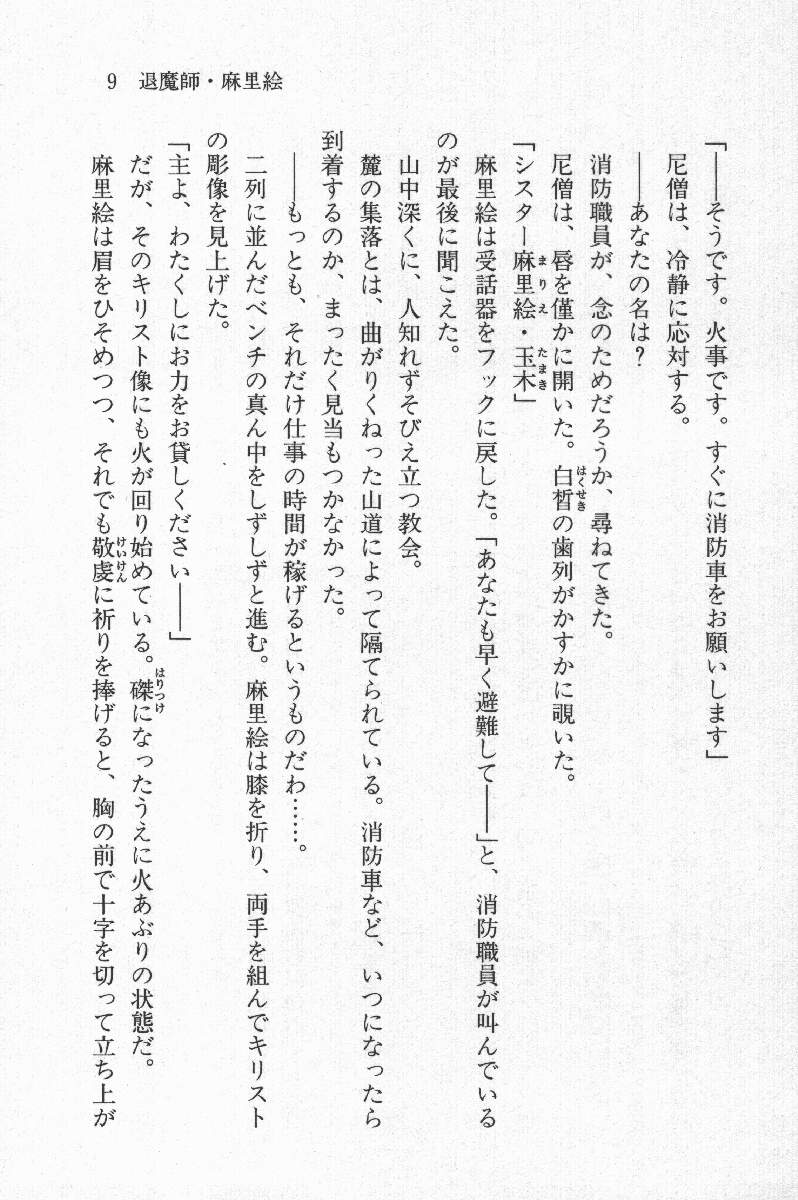 9 退魔師・麻里絵
「――そうです。火事です。すぐに消防車をお願いします」
尼僧は、冷静に応対する。
――あなたの名は?
消防職員が、念のためだろうか、尋ねてきた。
尼僧は、唇を僅かに開いた。白皙の歯列がかすかに覗いた。
「シスター麻里絵・玉木」
麻里絵は受話器をフックに戻した。「あなたも早く避難して――」と、消防職員が叫んでいる
のが最後に聞こえた。
山中深くに、人知れずそびえ立つ教会。
麓の集落とは、曲がりくねった山道によって隔てられている。消防車など、いつになったら
到着するのか、まったく見当もつかなかった。
――もっとも、それだけ仕事の時間が稼げるというものだわ……。
二列に並んだベンチの真ん中をしずしずと進む。麻里絵は膝を折り、両手を組んでキリスト
の彫像を見上げた。
「主よ、わたくしにお力をお貸しください――」
だが、そのキリスト像にも火が回り始めている。磔になったうえに火あぶりの状態だ。
麻里絵は眉をひそめつつ、それでも敬虔に祈りを捧げると、胸の前で十字を切って立ち上が